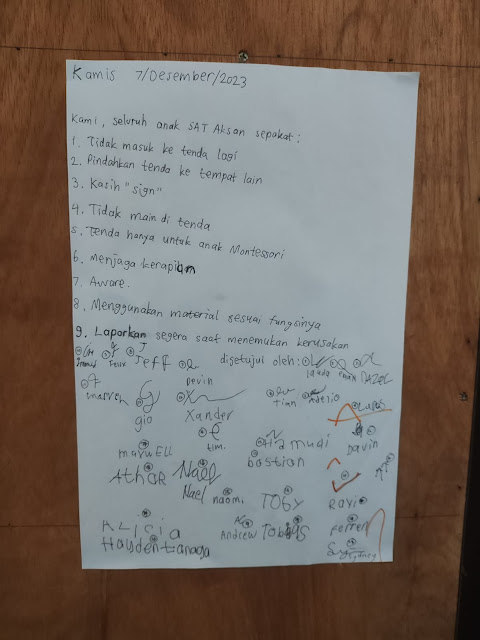 Kamis 7/Desember/2023
Kami, seluruh anak SAT Aksan sepakat:
1. Tidak masuk ke tenda lagi
2. Pindahkan tenda ke tempat lain
3. Kasih "sign"
4. Tidak main di tenda
5. Tenda hanya untuk anak Montessori
6. Menjaga kerapian
7. Aware.
8. Menggunakan material sesuai fungsinya
9. Laporkan segera saat menemukan kerusakan
Jeff disetujui oleh:
Devin
gio Xander Tian
Tim. mudi Davin
bastian
Athar Nael
Nael naomi TOBY RAVI
ALICIA Andrew Tobias Ferren
Hayden Tianaga Sydney